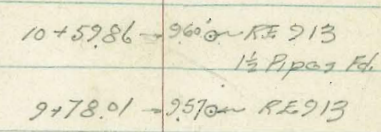 10+59.86 → 9.60' on RE 913
1½ Pipes Fd.
9+78.01 → 9.57 on RE 913